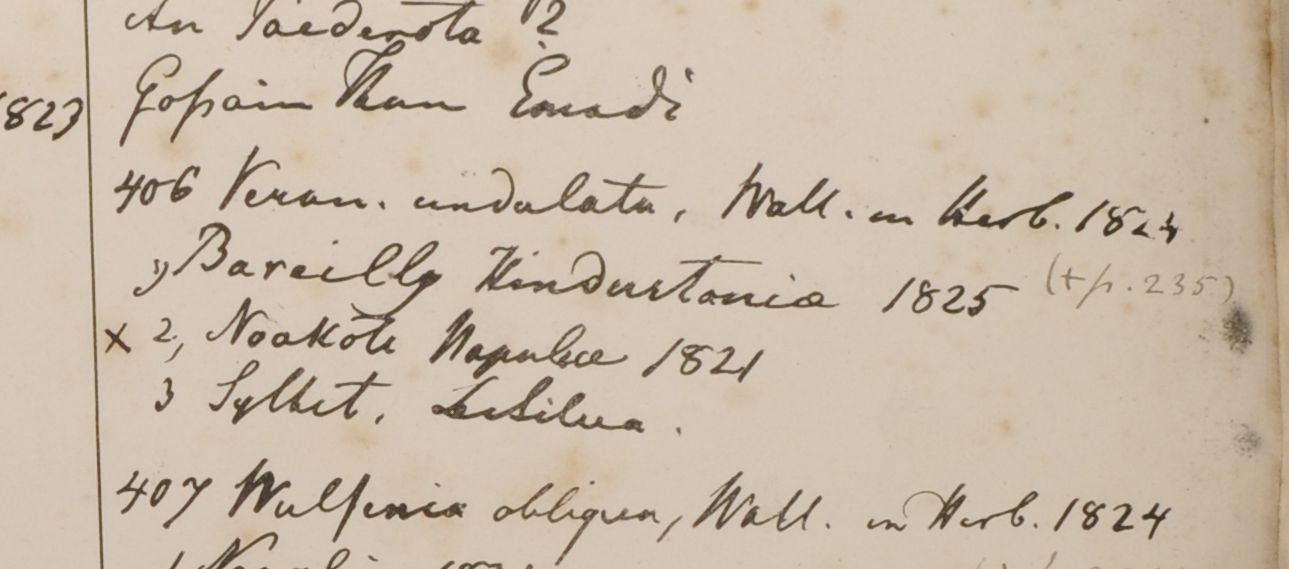 An Paederota ?
1823 Gossain Than Emodi
406 Veron. undulata, Wall. in Herb. 1824
Bareilly Hindustania 1825 (+ p. 235)
x 2, Noakote Napalia 1821
3 Sylhet. De Silva.
407 Wulfenia obliqua, Wall. in Herb. 1824